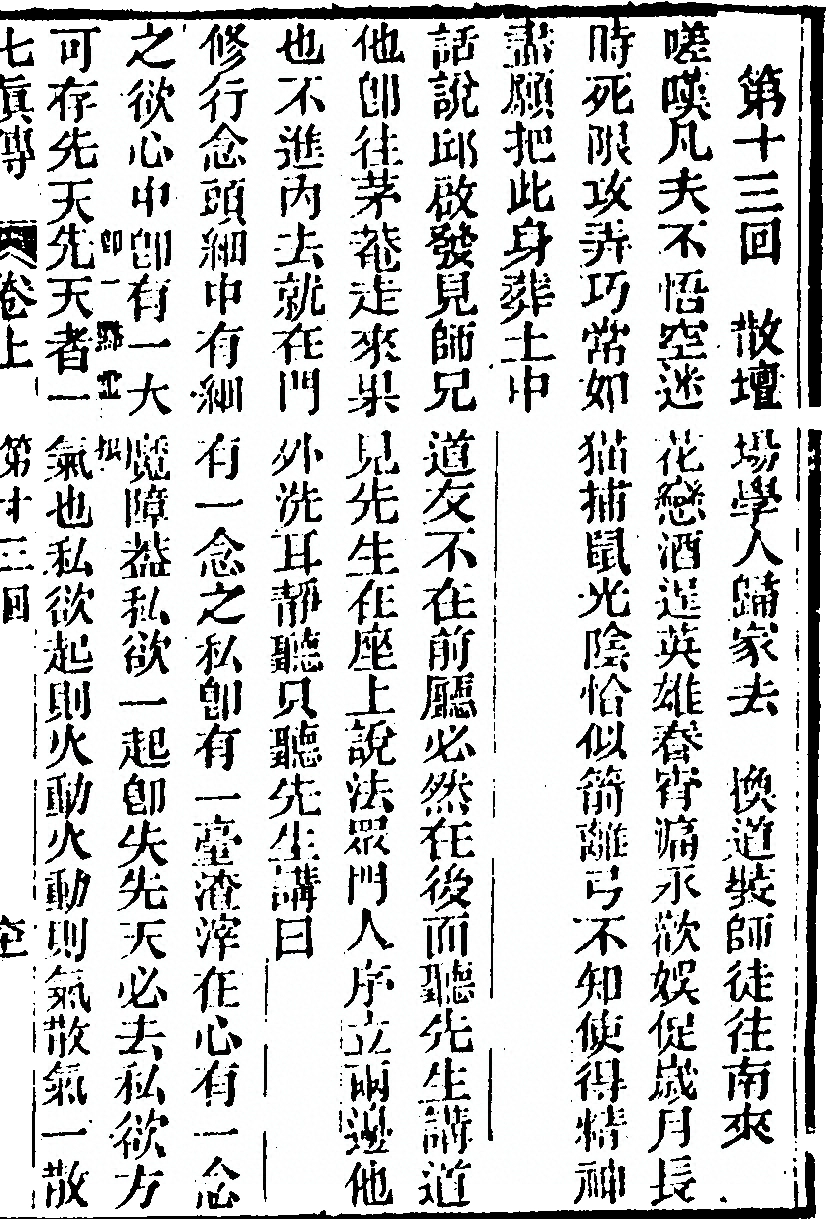 第十三回　散壇場學人歸家去　換道裝師徒往南來
嗟嘆凡夫不悟空迷花戀酒逞英雄春宵滿永歡娛促歲月長
時死限攻弄巧常如猫捕鼠光陰恰似箭離弓不知使得精神
盡願把此身葬土中
話說邱啟發見師兄道友不在前廳必然在後面聽先生講道
他卽往茅菴走來果見先生在座上說法眾門人序立兩邊他
也不進內去就在門外洗耳靜聽只聽先生講曰
修行念頭細中有細有一念之私卽有一毫渣滓在心有一念
之欲心中卽有一大魔障葢私欲一起卽失先天必去私欲方
可存先天先天者一氣也私欲起則火動火動則氣散氣一散
七眞傳　卷上　第十三回